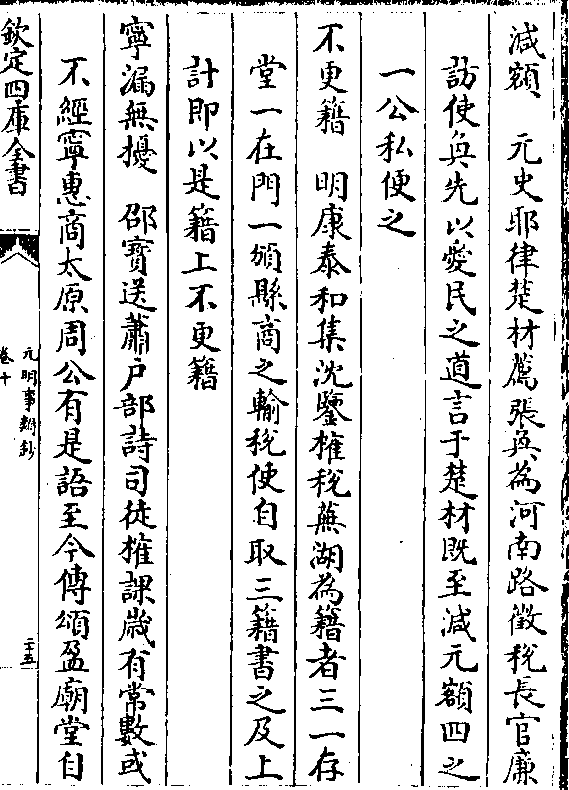 減額　元史耶律楚材薦張奐為河南路徵稅長官廉
訪使奐先以愛民之道言于楚材既至減元額四之
一公私便之
不更籍　明康泰和集沈鑒榷稅蕪湖為籍者三一存
堂一在門一頒縣商之輸稅使自取三籍書之及上
計即以是籍上不更籍
寧漏無擾　邵寶送蕭戶部詩司徒榷課歲有常數或
不經寧惠商太原周公有是語至今傳頌盈廟堂自
欽定四庫全書
元明事類鈔
卷十
二五